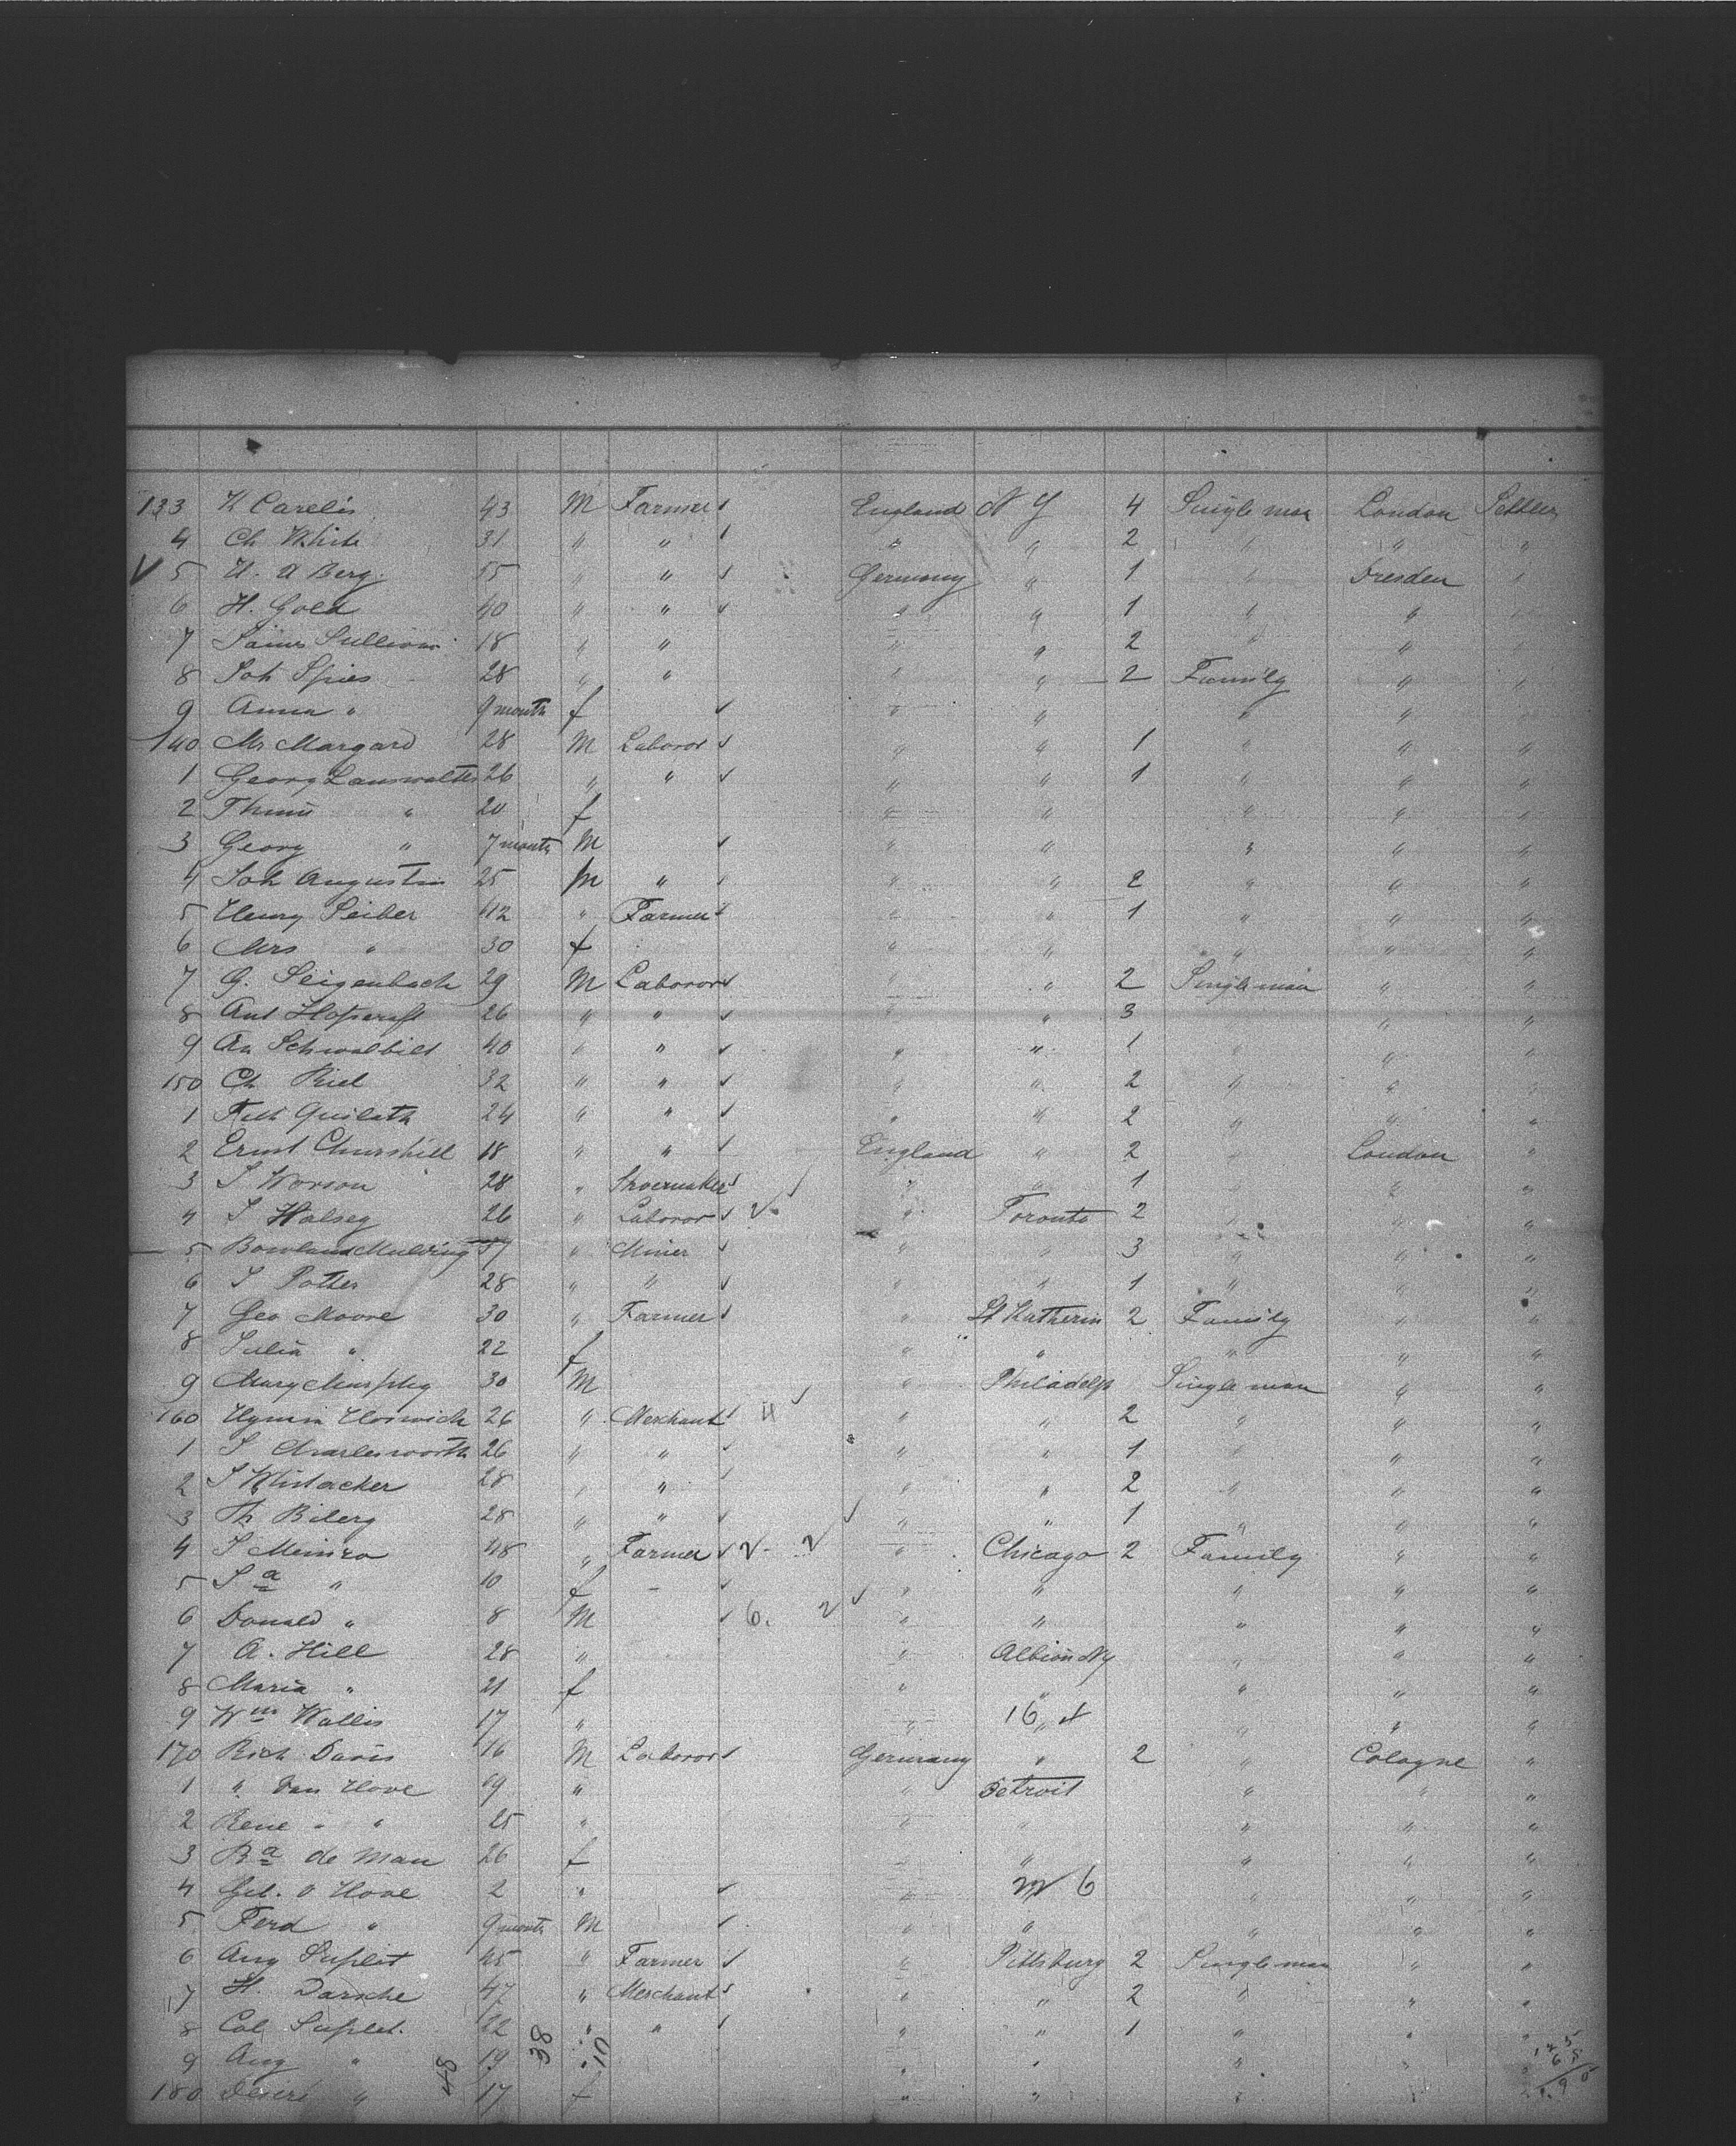 133 K Carelis 43 M Farmer England N Y 4 Single man London Settler
4 Ch White 31 " " " " 2 " " "
5 U. A Berg 55 " " Germany " 1 " Dresden "
6 H. Gold 40 " " " " 1 " " "
7 James Sullivan 18 " " " " 2 " " "
8 Joh Spies 28 " " " " 2 Family " "
9 Anna " 9 month f " " " " "
140 Mr Margard 28 M Laboror " " 1 " " "
1 Georg Lauswalter 26 " " " " 1 " " "
2 " 20 f " " " " "
3 Georg " 7 month M " " " " "
4 Joh Augustin 25 M " " " 2 " " "
5 Henry Seiber 42 " Farmer " " 1 " " "
6 Mrs " 30 f " " " " "
7 G. Seigenbach 29 M Laboror " " 2 Single man " "
8 Ant Hopcraft 26 " " " " 3 " " "
9 An Schwalbild 40 " " " " 1 " " "
150 Ch Riel 32 " " " " 2 " " "
1 Quilath 24 " " " " 2 " " "
2 Ernst Churshill 18 " " England " 2 " London "
3 J Worson 28 " Shoemaker " " 1 " " "
4 J Halsey 26 " Laboror " Toronto 2 " " "
5 37 " Miner " " 3 " " "
6 J Potter 28 " " " " 1 " " "
7 Geo Moore 30 " Farmer " St Katherin 2 Family " "
8 Julia " 22 f " " " " "
9 Mary Murphy 30 M " Philadelp Single man " "
160 Hymin Horwich 26 " Merchant " " 2 " " "
1 J Charlesworth 26 " " " " 1 " " "
2 J Whitacker 28 " " " " 2 " " "
3 Th Bilerg 28 " " " " 1 " " "
4 J 48 " Farmer " Chicago 2 Family " "
5 J a " 10 f " " " " "
6 Donald " 8 M 6. 2 " " " " "
7 A. Hill 28 " " Albion Ny " " "
8 Maria " 21 f " " " " "
9 Wm Wallis 17 " " 16 " " " "
170 Rich Davis 16 M Laboror Germany " 2 " Cologne "
1 " Van Hove 69 " " Detroit " " "
2 Rene " " 25 " " " " " "
3 Ra de Man 26 f " " " " "
4 Gil. v Hove 2 " " 6 " " "
5 Ferd " 9 month M " " " " "
6 Aug Suplit 45 " Farmer " Pittsburg 2 Single man " "
7 H. Darsche 47 " Merchant " " 2 " " "
8 Col Suplit. 22 " " " " 1 " " "
9 Aug " 19 " " " " " "
180 Desire " 17 f " " " " "
48 38 10